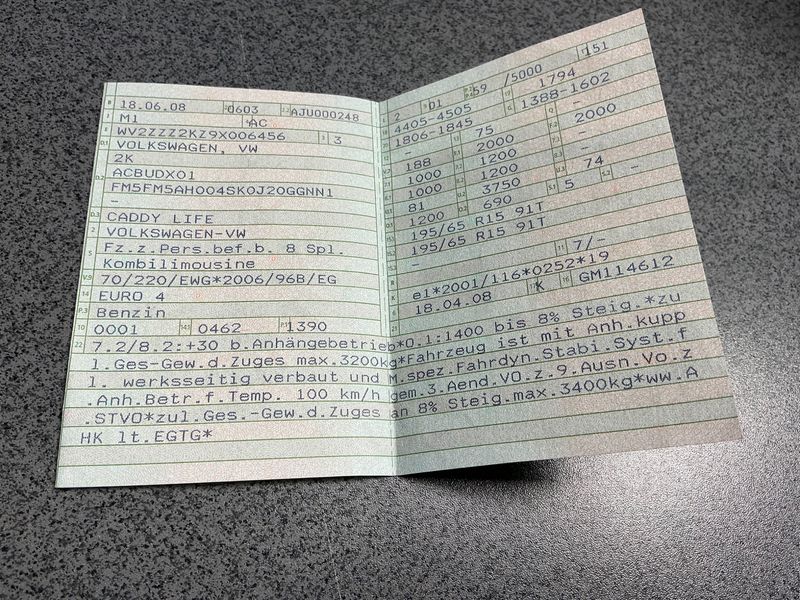 B 18.06.08 2.1 0603 2.2 AJU000248
J M1 4 AC
E WV2ZZZ2KZ9X006456 3 3
D.1 VOLKSWAGEN, VW
D.2 2K
ACBUDX01
FM5FM5AH004SK0J20GGNN1
-
D.3 CADDY LIFE
2 VOLKSWAGEN-VW
5 Fz.z.Pers.bef.b. 8 Spl.
Kombilimousine
V.9 70/220/EWG*2006/96B/EG
14 EURO 4
P.3 Benzin
10 0001 14.1 0462 P.1 1390
L 2 9 01 P.2/P.4 59 /5000 T 151
18 4405-4505 19 1794
20 1806-1845 G 1388-1602
12 - 13 75 Q -
V.7 188 F.1 2000 F.2 2000
7.1 1000 7.2 1200 7.3 -
8.1 1000 8.2 1200 8.3 -
U.1 81 U.2 3750 U.3 74
O.1 1200 O.2 690 S.1 5 S.2 -
15.1 195/65 R15 91T
15.2 195/65 R15 91T
15.3 -
R - 11 7/-
K e1*2001/116*0252*19
6 18.04.08 17 K 16 GM114612
21
22 7.2/8.2:+30 b.Anhängebetrieb*O.1:1400 bis 8% Steig.*zu
l.Ges-Gew.d.Zuges max.3200kg*Fahrzeug ist mit Anh.kupp
l. werksseitig verbaut und M.spez.Fahrdyn.Stabi.Syst.f
.Anh.Betr.f.Temp. 100 km/h gem.3.Aend.VO.z.9.Ausn.Vo.z
.STVO*zul.Ges.-Gew.d.Zuges an 8% Steig.max.3400kg*ww.A
HK lt.EGTG*